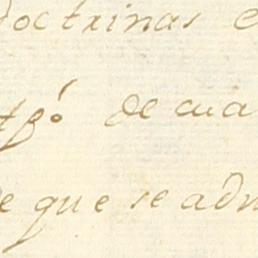 doctrinas
de cua
e que se adm